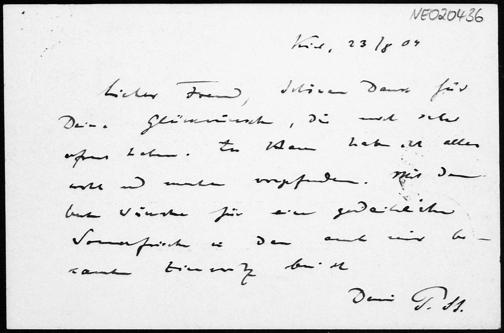 NE020436
Kiel, 23/8 04
Lieber Freund, schönen Dank für
Deine Glückwünsche, die mich sehr
haben. Zu Haus habe ich alles
wohl und vorgefunden. Mit den
besten Wünschen für eine gedeihliche
Sommerfrische in dem auch mir be-
kannten bin ich
Dein